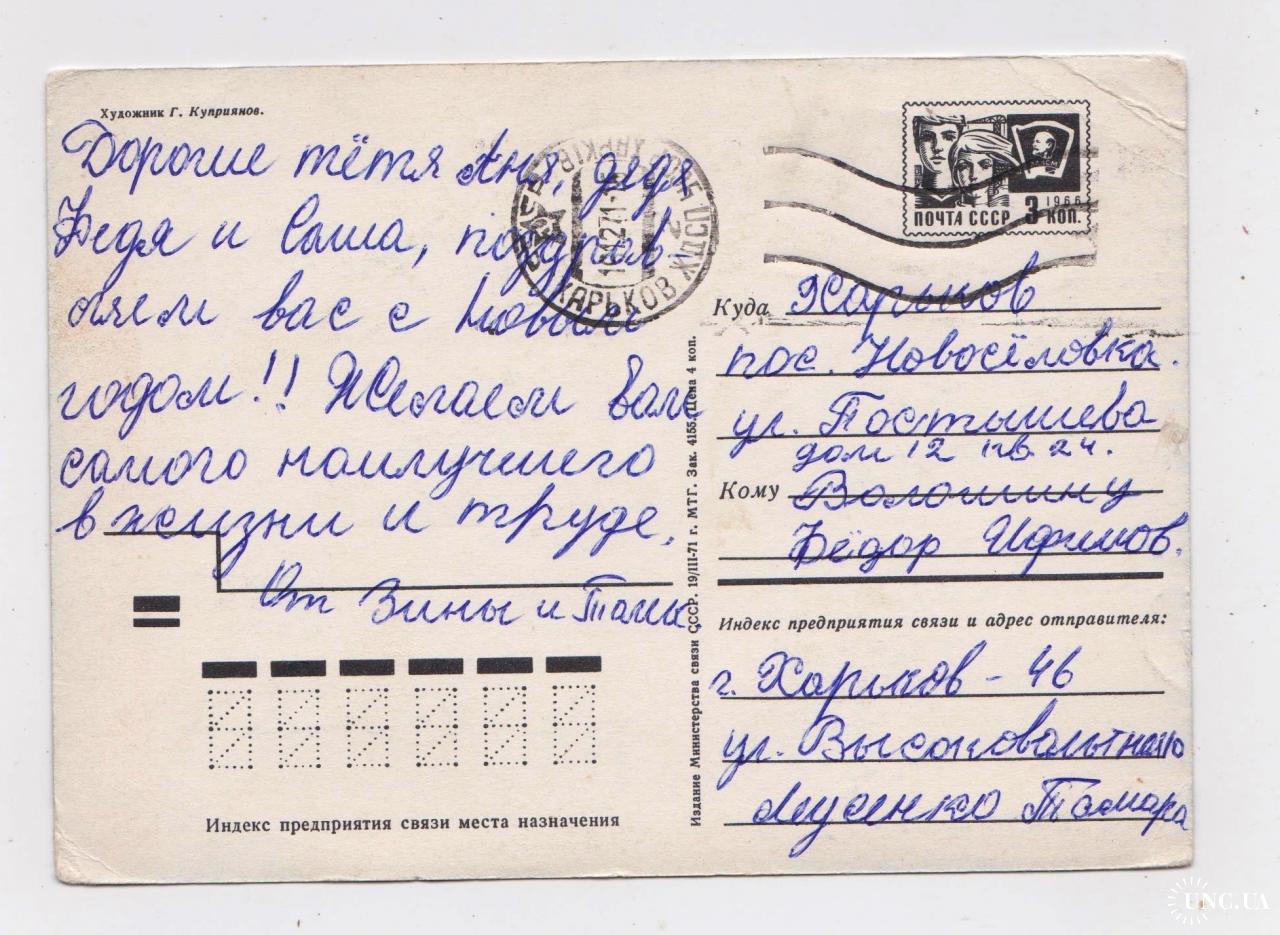 Художник Г. Куприянов.
Дорогие тётя Аня, дядя
Федя и Саша, поздрав-
ляем вас с Новым
годом!! Желаем вам
самого наилучшего
в жизни и труде.
От Зины и Тамк.
Индекс предприятия связи места назначения
Издание Министерства связи СССР. 19/III-71 г. МТГ. Зак. 4155. Цена 4 коп.
ХАРЬКОВ ЖДСП
ПОЧТА СССР 3 КОП.
1966
Куда Харьков
пос. Новосёловка.
ул. Постышева
дом 12 кв. 24.
Кому Волошину
Фёдор Ифимов.
Индекс предприятия связи и адрес отправителя:
г. Харьков - 46
ул. Высоковольтная
Тамара
UNC.UA